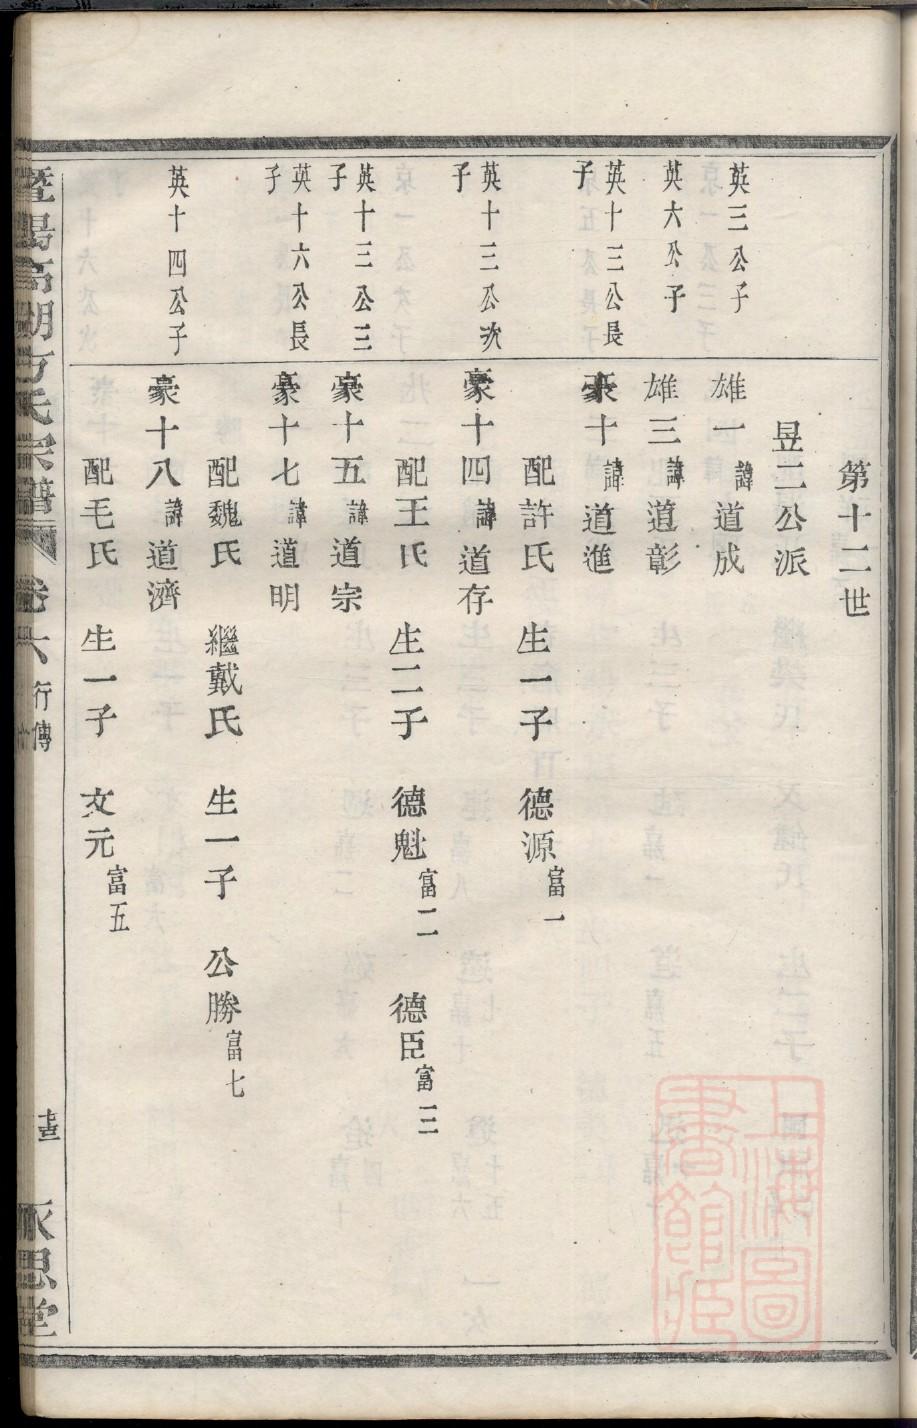 第十二世
昱二公派
英三公子
雄一諱道成
英六公子
雄三諱道彰
英十三公長子
豪十諱道進
配許氏 生一子 德源富一
英十三公次子
豪十四諱道存
配王氏 生二子 德魁富二 德臣富三
英十三公三子
豪十五諱道宗
英十六公長子
豪十七諱道明
配魏氏 繼戴氏 生一子 公勝富七
英十四公子
豪十八諱道濟
配毛氏 生一子 文元富五
暨陽高湖方氏宗譜 卷六 行傳
永思堂
上海圖書館藏